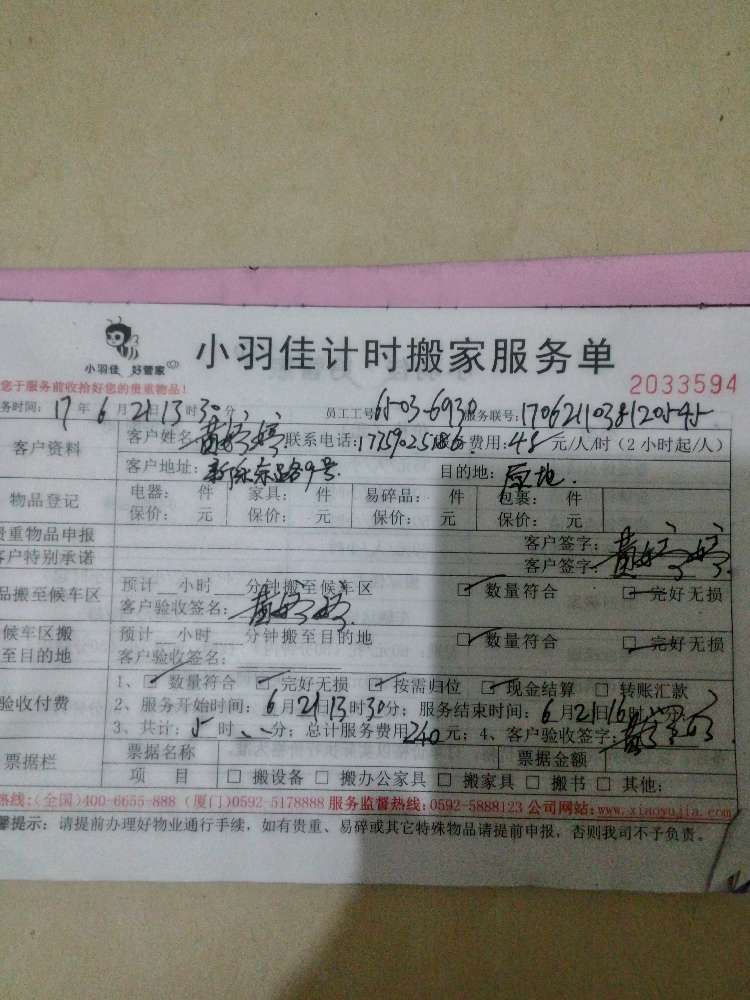 小羽佳 好管家
小羽佳计时搬家服务单
您于服务前收拾好您的贵重物品！
2033594
务时间：17年6月21日13时30分 员工工号6503-6930 服务联号：
客户资料 客户姓名 黄婷婷 联系电话： 服务费用：48元/人/时（2小时起/人）
客户地址： 9号 目的地：原地.
物品登记 电器： 件 家具： 件 易碎品： 件 包裹： 件
保价： 元 保价： 元 保价： 元 保价： 元
贵重物品申报 客户签字：黄婷婷
客户特别承诺 客户签字：黄婷婷
品搬至候车区 预计__小时__分钟搬至候车区 ☑ 数量符合 ☑ 完好无损
客户验收签名：黄婷婷
候车区搬至目的地 预计__小时__分钟搬至目的地 ☑ 数量符合 ☑ 完好无损
客户验收签名：
验收付费 1、☑ 数量符合 ☑ 完好无损 ☑ 按需归位 ☑ 现金结算 □ 转账汇款
2、服务开始时间：6月21日13时30分；服务结束时间：6月21日16时
3、共计：5时 分；总计服务费用240元；4、客户验收签字：
票据栏 票据名称 票据金额
项 目 □ 搬设备 □ 搬办公家具 □ 搬家具 □ 搬书 □ 其他：
热线：(全国)400-6655-888 (厦门)0592-5178888 服务监督热线：0592-5888123 公司网站：www.xiaoyujia.com
馨提示：请提前办理好物业通行手续，如有贵重、易碎或其它特殊物品请提前申报，否则我司不予负责。